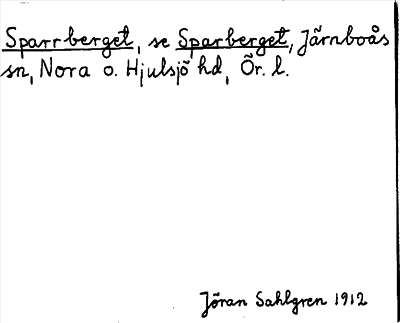 Sparrberget, se Sparberget, Järnboås
sn, Nora o. Hjulsjö hd, Ör. l.
Jöran Sahlgren 1912